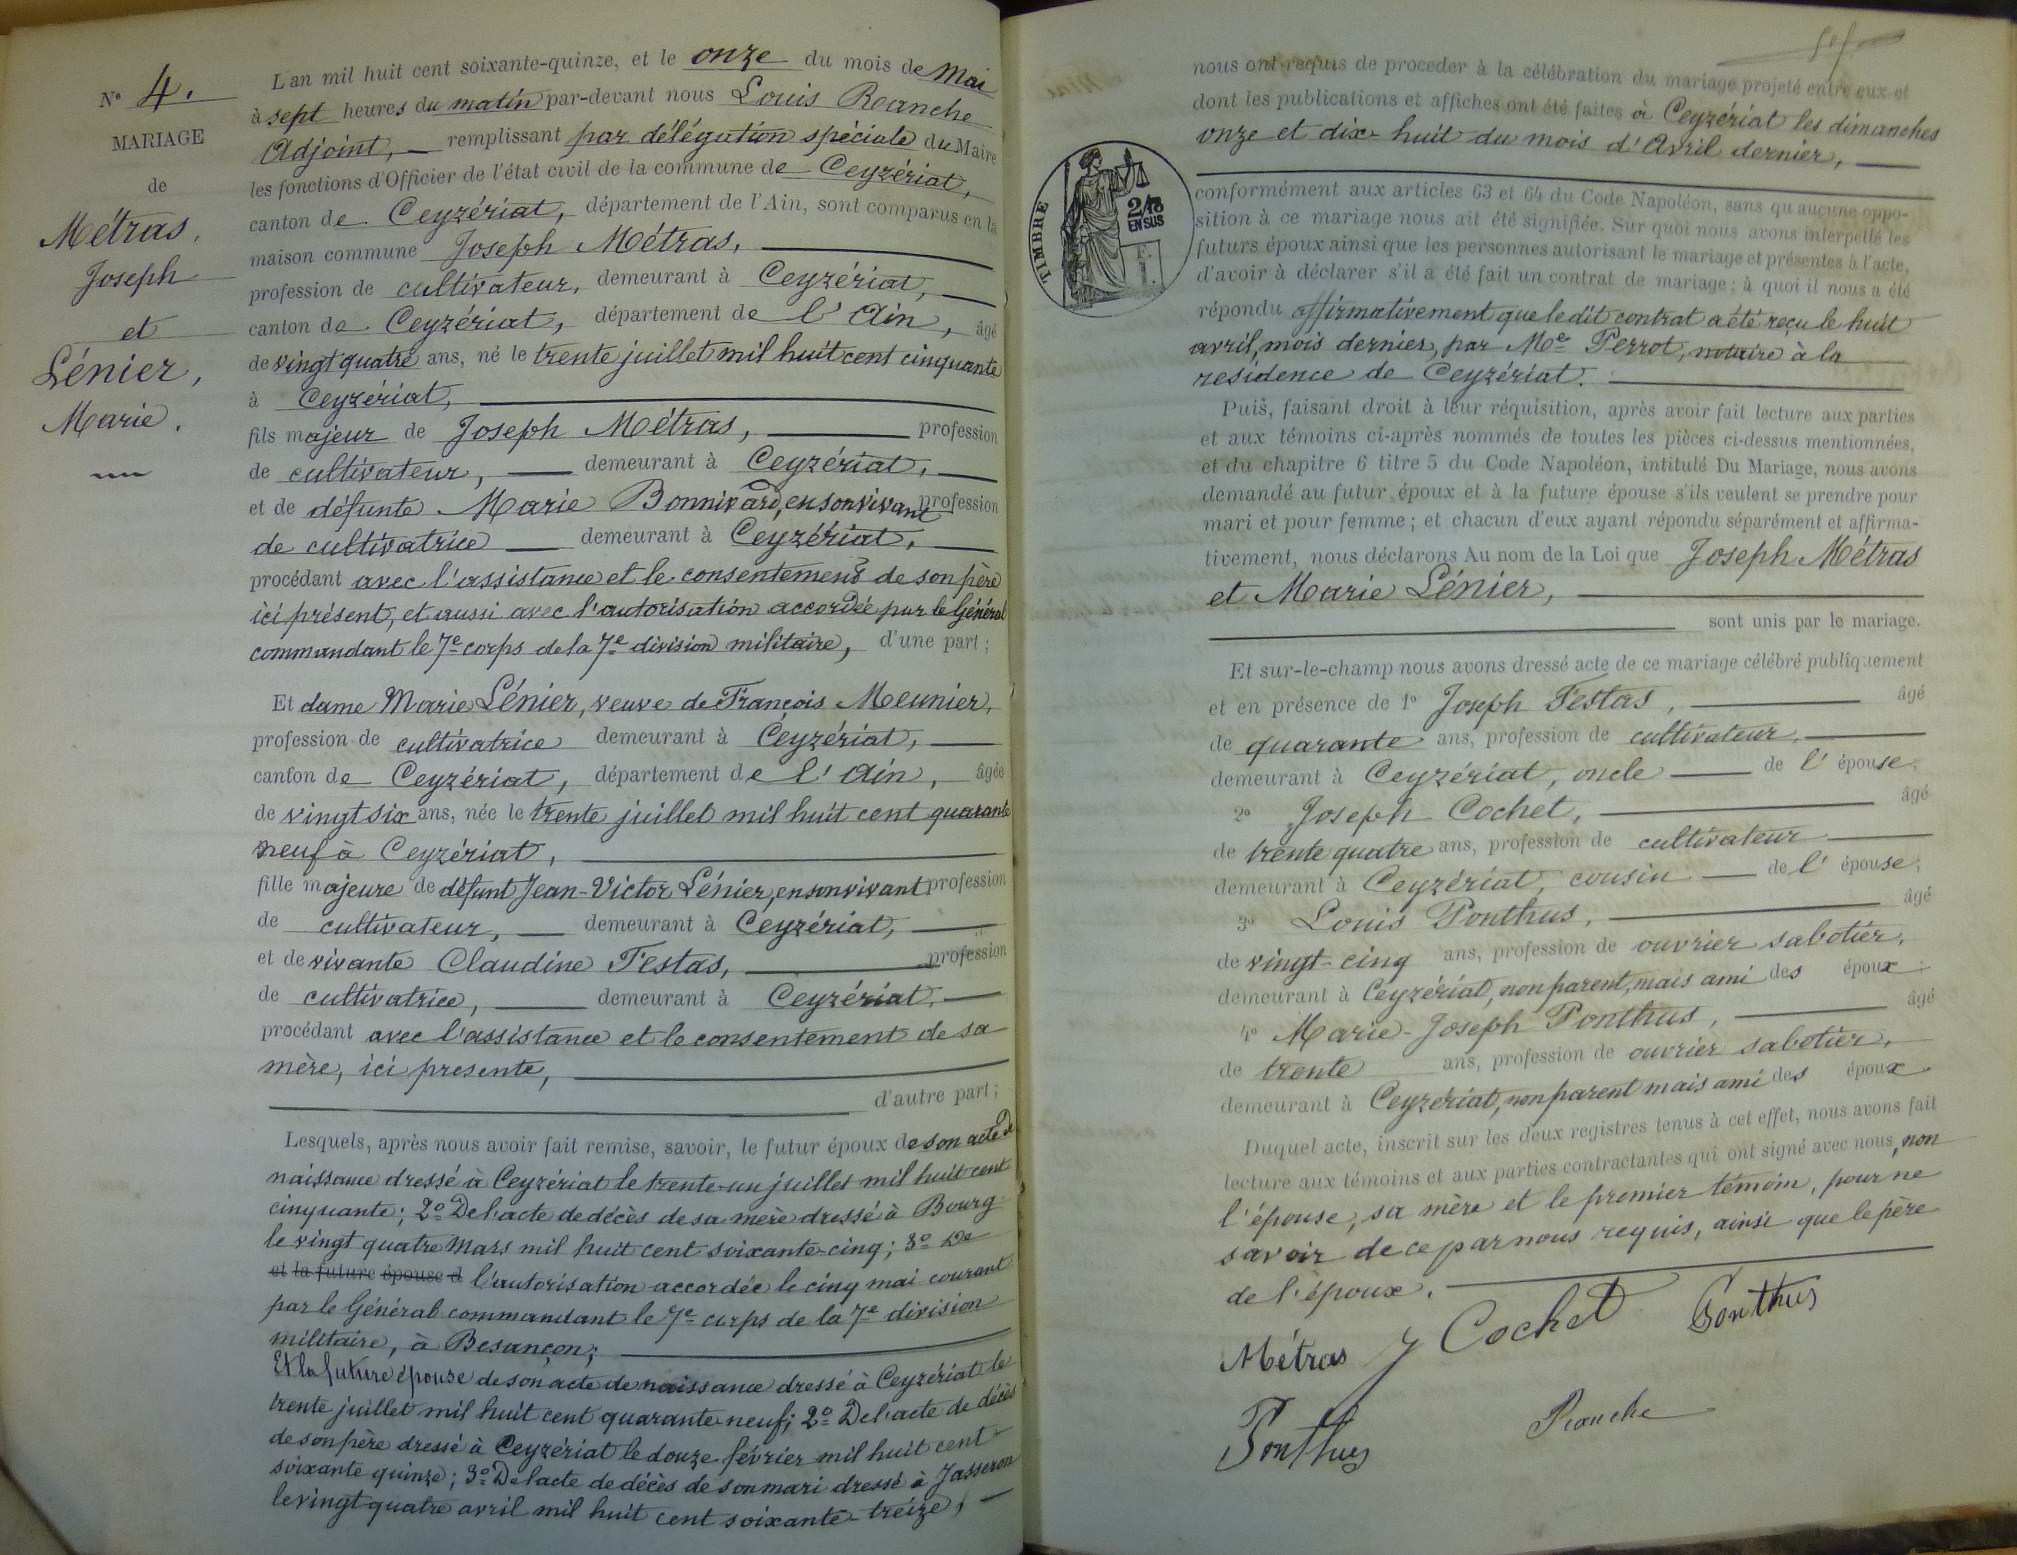 N° 4.
MARIAGE
de
Métras,
Joseph
et
Lénier,
Marie.
L'an mil huit cent soixante-quinze, et le onze du mois de Mai
à sept heures du matin par-devant nous Louis Ranche
Adjoint, remplissant par délégation spéciale du Maire
les fonctions d'Officier de l'état civil de la commune de Ceyzériat,
canton de Ceyzériat, département de l'Ain, sont comparus en la
maison commune Joseph Métras,
profession de cultivateur, demeurant à Ceyzériat,
canton de Ceyzériat, département de l'Ain, âgé
de vingt quatre ans, né le trente juillet mil huit cent cinquante
à Ceyzériat,
fils majeur de Joseph Métras, profession
de cultivateur, demeurant à Ceyzériat,
et de défunte Marie Bonnivard, en son vivant profession
de cultivatrice demeurant à Ceyzériat,
procédant avec l'assistance et le consentement de son père
ici présent, et aussi avec l'autorisation accordée par le Général
commandant le 7e corps de la 7e division militaire, d'une part;
Et dame Marie Lénier, veuve de François Meunier,
profession de cultivatrice demeurant à Ceyzériat,
canton de Ceyzériat, département de l'Ain, âgée
de vingt six ans, née le trente juillet mil huit cent quarante
neuf à Ceyzériat,
fille majeure de défunt Jean-Victor Lénier, en son vivant profession
de cultivateur, demeurant à Ceyzériat,
et de vivante Claudine Festas, profession
de cultivatrice, demeurant à Ceyzériat,
procédant avec l'assistance et le consentement de sa
mère, ici presente,
d'autre part;
Lesquels, après nous avoir fait remise, savoir, le futur époux de son acte de
naissance dressé à Ceyzériat le trente-un juillet mil huit cent
cinquante; 2o De l'acte de décès de sa mère dressé à Bourg
le vingt quatre Mars mil huit cent soixante-cinq; 3o De
et la future épouse d l'autorisation accordée le cinq mai courant
par le Général commandant le 7e corps de la 7e division
militaire, à Besançon;
Et la future épouse de son acte de naissance dressé à Ceyzériat le
trente juillet mil huit cent quarante-neuf; 2o De l'acte de décès
de son père dressé à Ceyzériat le douze février mil huit cent
soixante quinze; 3o De l'acte de décès de son mari dressé à Jasseron
le vingt-quatre avril mil huit cent soixante-treize,
nous ont requis de proceder à la célébration du mariage projeté entre eux et
dont les publications et affiches ont été faites à Ceyzériat les dimanches
onze et dix-huit du mois d'Avril dernier,
TIMBRE
2/10
EN SUS
F.
1.
conformément aux articles 63 et 64 du Code Napoléon, sans qu'aucune oppo-
sition à ce mariage nous ait été signifiée. Sur quoi nous avons interpellé les
futurs époux ainsi que les personnes autorisant le mariage et présentes à l'acte,
d'avoir à déclarer s'il a été fait un contrat de mariage; à quoi il nous a été
répondu affirmativement que le dit contrat a été reçu le huit
avril, mois dernier, par Me Perrot, notaire à la
residence de Ceyzériat.
Puis, faisant droit à leur réquisition, après avoir fait lecture aux parties
et aux témoins ci-après nommés de toutes les pièces ci-dessus mentionnées,
et du chapitre 6 titre 5 du Code Napoléon, intitulé Du Mariage, nous avons
demandé au futur époux et à la future épouse s'ils veulent se prendre pour
mari et pour femme; et chacun d'eux ayant répondu séparément et affirma-
tivement, nous déclarons Au nom de la Loi que Joseph Métras
et Marie Lénier,
sont unis par le mariage.
Et sur-le-champ nous avons dressé acte de ce mariage célébré publiquement
et en présence de 1o Joseph Festas, âgé
de quarante ans, profession de cultivateur,
demeurant à Ceyzériat, oncle de l'épouse;
2o Joseph Cochet, âgé
de trente quatre ans, profession de cultivateur
demeurant à Ceyzériat, cousin de l'épouse;
3o Louis Ponthus, âgé
de vingt-cinq ans, profession de ouvrier sabotier,
demeurant à Ceyzériat, non parent, mais ami des époux;
4o Marie-Joseph Ponthus, âgé
de trente ans, profession de ouvrier sabotier,
demeurant à Ceyzeriat, non parent mais ami des époux.
Duquel acte, inscrit sur les deux registres tenus à cet effet, nous avons fait
lecture aux témoins et aux parties contractantes qui ont signé avec nous, non
l'épouse, sa mère et le premier témoin, pour ne
savoir de ce par nous requis, ainsi que le père
de l'époux.
Métras J Cochet Ponthus
Ponthus Ranche